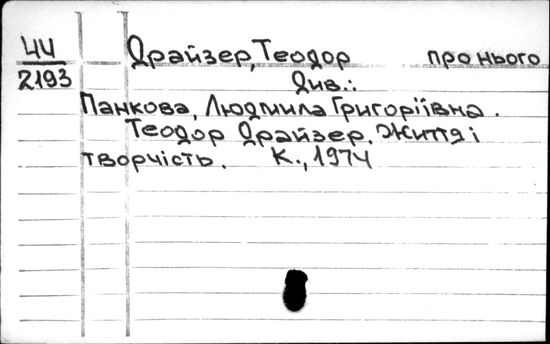 44 Драйзер, Теодор про нього
2193 Див.:
Панкова, Людмила Григоріївна.
Теодор Драйзер. Життя і
творчість. К., 1974